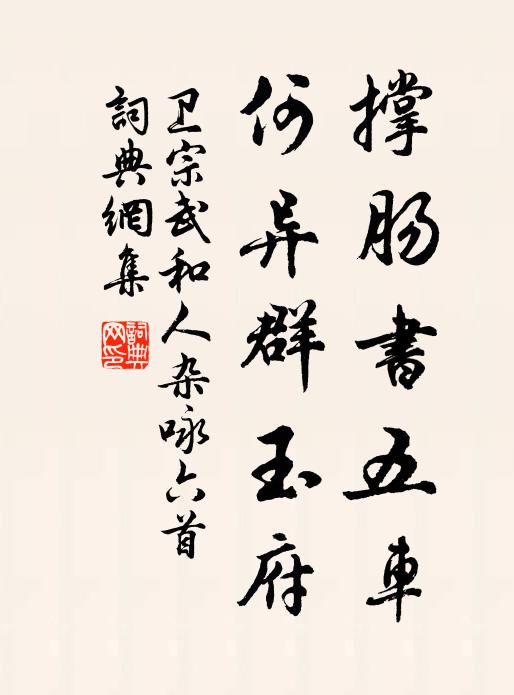 撑肠書五車
何异群玉府
卫宗武和人杂咏六首
詞典網集
詞典網印